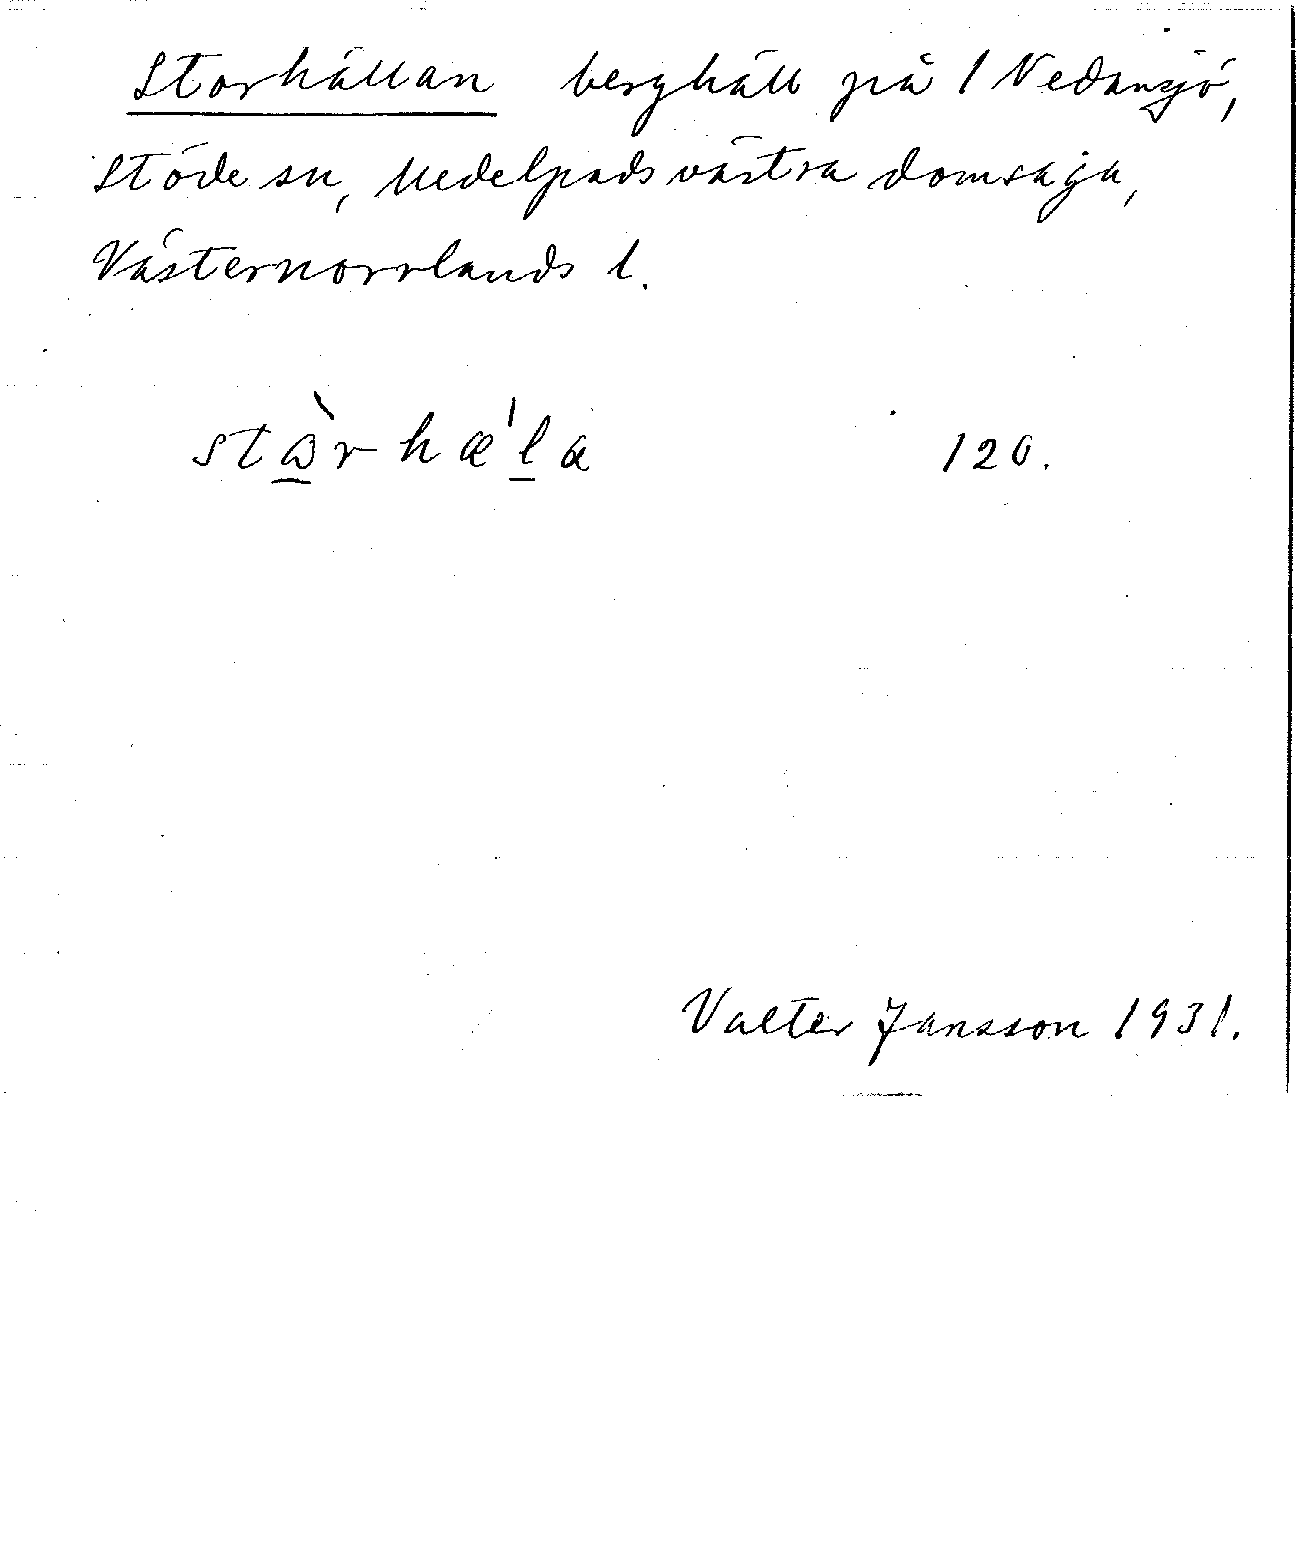 Storhällan berghäll på 1 Nedansjö,
Stöde sn, Medelpads västra domsaga,
Västernorrlands l.
stɷ̀rhæ'la 120.
Valter Jansson 1931.